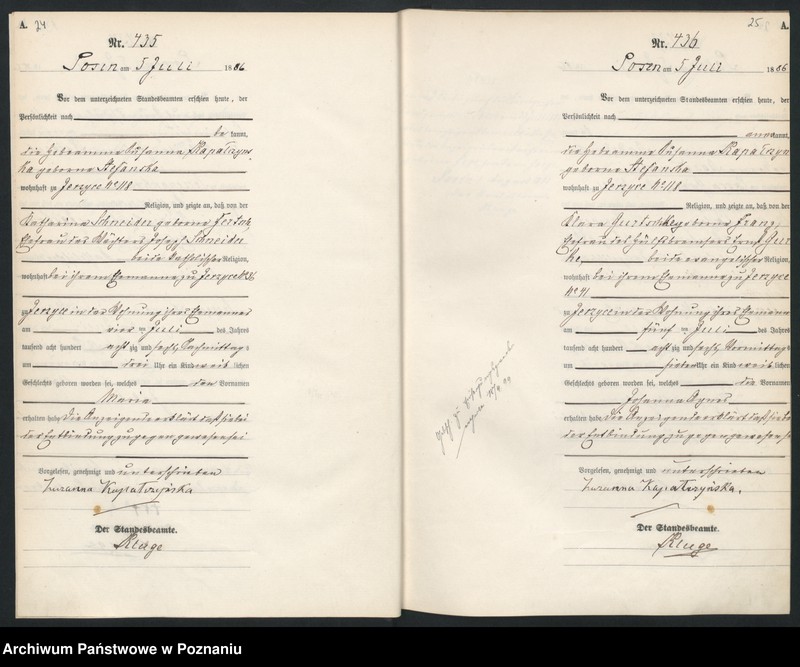 A. 24
Nr. 435
Posen am 5 Juli 1886
Vor dem unterzeichneten Standesbeamten erschien heute, der
Persönlichkeit nach
be kannt,
die Hebeamme Susanna Kapatczyns-
ka geborne Stefanska
wohnhaft zu Jerzyce No 118
Religion, und zeigte an, daß von der
Katharina Schneider geborne
Ehefrau des Wächters Joseph Schneider
beide katholischer Religion,
wohnhaft bei ihrem Ehemanne zu Jerzyce
zu Jerzyce in der Wohnung ihres Ehemannes
am vier ten Juli des Jahres
tausend acht hundert acht zig und sechs, Nachmittags
um drei Uhr ein Kind weib lichen
Geschlechts geboren worden sei, welches den Vornamen
Maria
erhalten habe. Die Anzeigende erklärt daß sie bei
der Entbindung zugegen gewesen sei
Vorgelesen, genehmigt und unterschrieben
Zuzanna Kapatczyńska
Der Standesbeamte.
Kluge
25 A.
Nr. 436
Posen am 5 Juli 1886
Vor dem unterzeichneten Standesbeamten erschien heute, der
Persönlichkeit nach
kannt,
die Hebeamme Susanna Kapatczyn
geborne Stefanska
wohnhaft zu Jerzyce No 118
Religion, und zeigte an, daß von der
Klara geborne Franz,
Ehefrau des Hülfsbremsers Ernst
ke, beide evangelischer Religion,
wohnhaft bei ihrem Ehemanne zu Jerzyce
No 41
zu Jerzyce in der Wohnung ihres Ehemanne
am fünf ten Juli des Jahres
tausend acht hundert acht zig und sechs, Vormittags
um sieben Uhr ein Kind weib lichen
Geschlechts geboren worden sei, welches die Vornamen
Johanna Agnes
erhalten habe. Die Anzeigende erklärt daß sie bei
der Entbindung zugegen gewesen se
Vorgelesen, genehmigt und unterschrieben
Zuzanna Kapatczyńska.
Der Standesbeamte.
Kluge
Archiwum Państwowe w Poznaniu